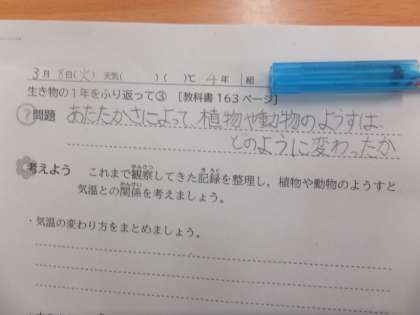 3月8日(火) 天気( )( )℃ 4年 1組
生き物の1年をふり返って③ [教科書163ページ]
?問題 あたたかさによって、植物や動物のようすは、
どのように変わったか
考えよう これまで観察してきた記録を整理し,植物や動物のようすと
気温との関係を考えましょう。
・気温の変わり方をまとめましょう。